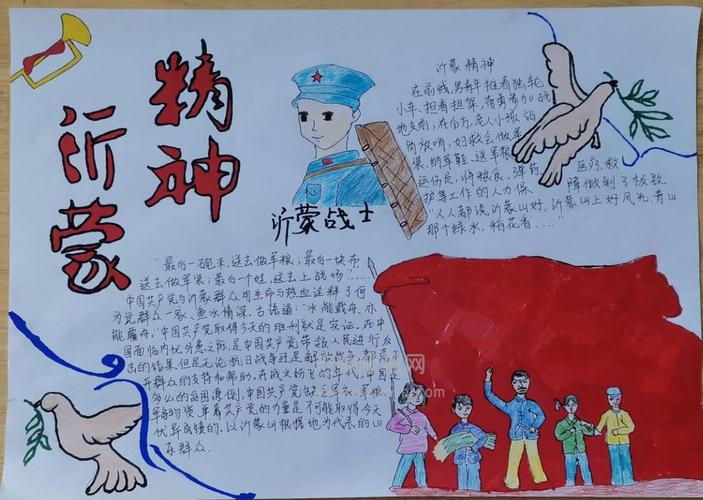 沂蒙
精神
沂蒙战士
沂蒙精神
在前线,男青年推着独轮
小车、担着担架,奋勇参加战
地支前;在后方,老人小孩站
岗放哨,妇救会做军
装、纳军鞋、送军粮
运伤员,将粮食、弹药、医疗、救
护等工作的人力保障做到了极致
"人人都说沂蒙山好,沂蒙山上好风光,青山
那个绿水,稻花香....!
"最后一碗米,送去做军粮;最后一块布
送去做军装;最后一个娃,送去上战场!"……
中国共产党与沂蒙群众用生命与热血诠释了何
为党群众一家、鱼水情深。古语道:"水能载舟,亦
能覆舟。"中国共产党取得今天的胜利就是实证。在中
国面临内忧外患之际,是中国共产党带领人民进行反
击的结果。但是无论抗日战争还是解放战争,都离不
开群众的支持和帮助。在战火纷飞的年代,中国是
多么的贫困潦倒,中国共产党缺乏军衣、军粮
军备物资,单靠共产党的力量是何能取得今天
优异成绩的。以沂蒙山根据地为代表的山
东群众